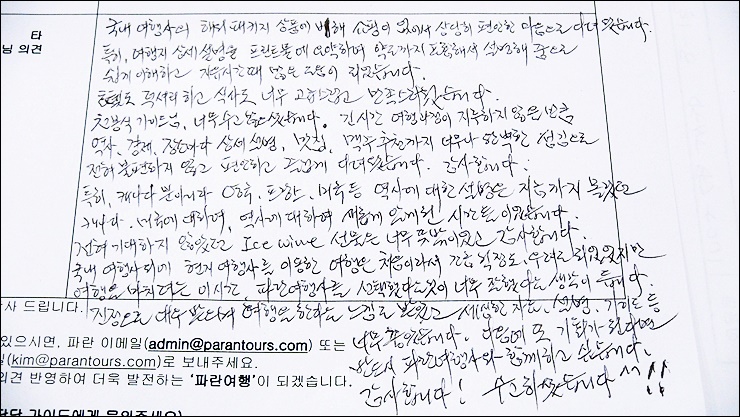 타
님 의견
국내 여행사의 해외 패키지 상품에 비해 쇼핑이 없어서 상당히 편안한 마음으로 다녀 왔습니다.
특히, 여행지 상세 설명을 프린트물에 요약하며 약도까지 포함해서 설명해 줌으로
쉽게 이해하고 자유시간때 많은 도움이 되었습니다.
호텔도 럭셔리하고 식사도 너무 고급스럽고 만족스러웠습니다.
가이드님, 너무 수고 많으셨습니다. 긴시간 여행일정이 지루하지 않을만큼
역사, 경제, 상세설명, 맛집, 맥주 추천까지 너무나 완벽한 섬김으로
전혀 불편하지 않고 편안하고 즐겁게 다녀왔습니다. 감사합니다.
특히, 캐나다 뿐아니라 영국, 프랑스, 미국등 역사에 대한 설명은 지금까지 몰랐던
캐나다, 미국에 대하여, 역사에 대하여 새롭게 일깨워진 시간들이었습니다.
전혀 기대하지 않았던 Ice wine 선물은 너무 뜻밖이었고 감사합니다.
국내 여행사외에 현지여행사를 이용한 여행은 처음이라서 긴급 걱정도, 우려도 되었었지만
여행을 마치려는 이시간, 파란여행사를 선택했던것이 너무 잘했다는 생각이 듭니다.
사 드립니다.
진정으로 대우 받으며 여행을 한다는 느낌을 받았고 세심한 지도, 설명, 가이드등
있으시면, 파란 이메일(admin@parantours.com) 또는
너무 좋았습니다. 다음에 또 기회가 된다면
일(kim@parantours.com)로 보내주세요.
반드시 파란여행사와 함께하고 싶습니다.
의견 반영하여 더욱 발전하는 '파란여행'이 되겠습니다.
감사합니다! 수고하셨습니다 ^^ !!
담당 가이드에게 물의주세요)